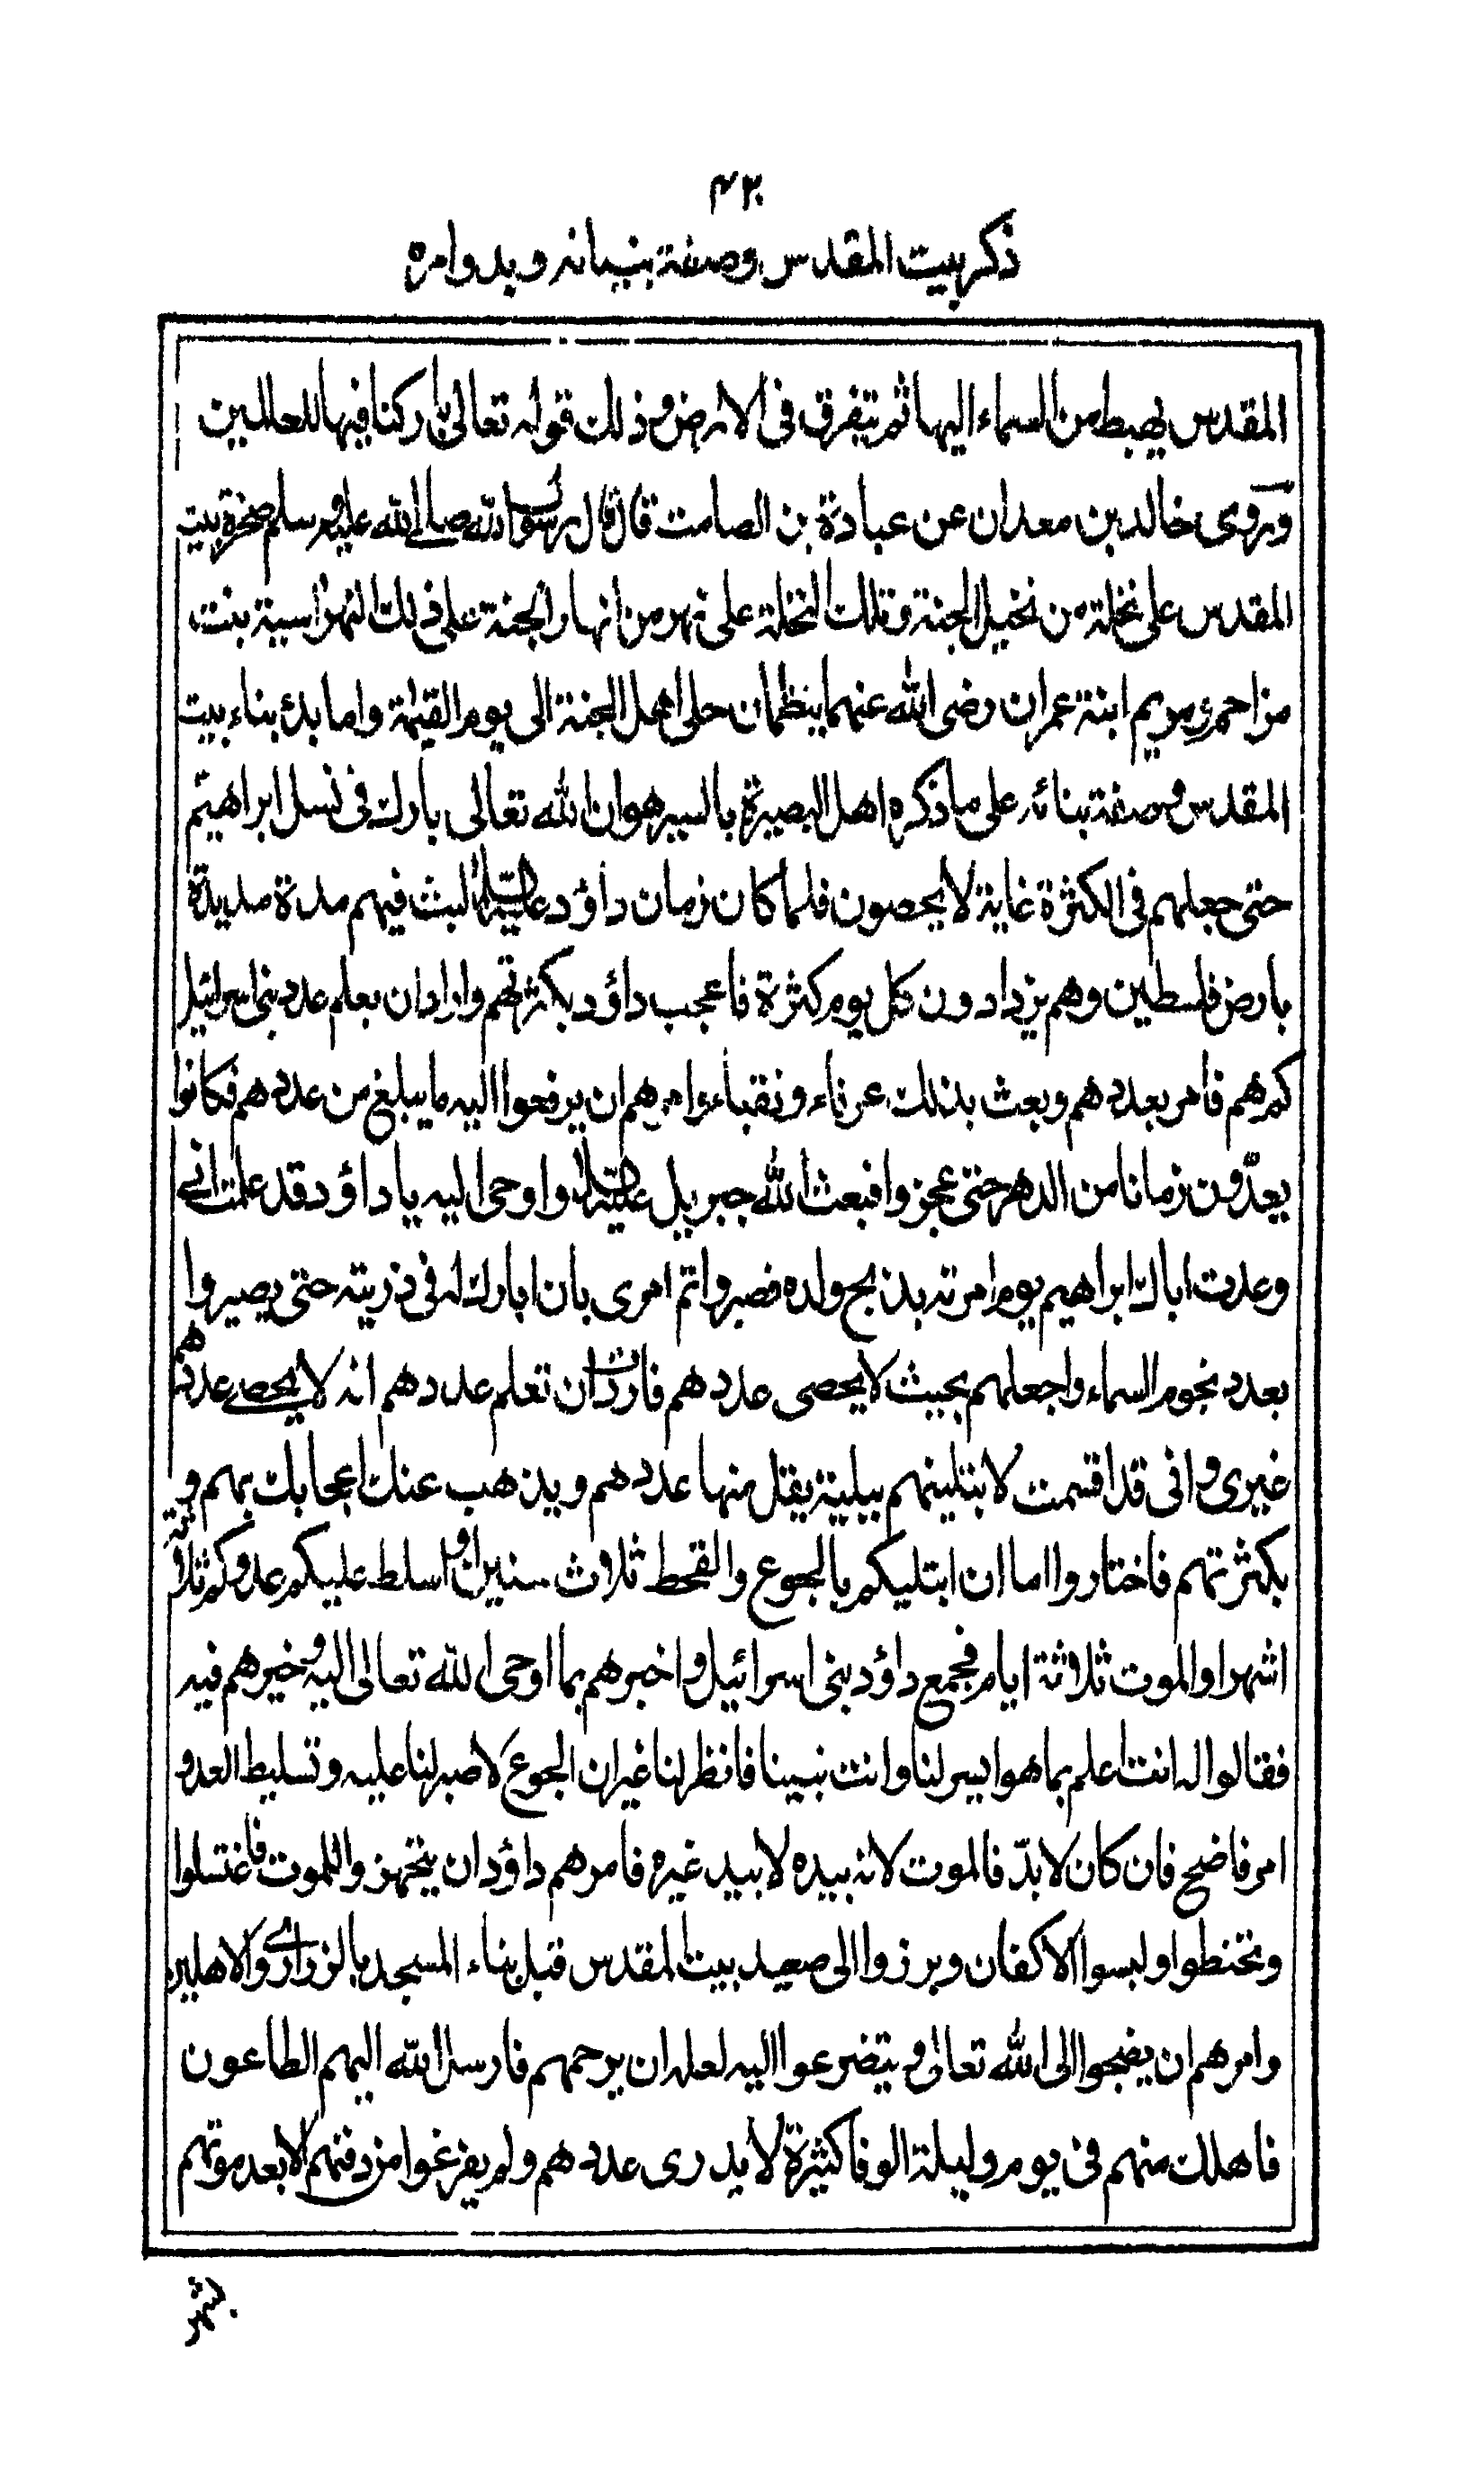 ۴۲
ذكر بيت المقدس وصفة بنيانه وبدو امره
المقدس يهبط من السماء اليها ثم يتفرق فى الارض وذلك قوله تعالى باركنا فيها للعالمين
وروى خالد بن معدان عن عبادة بن الصامت قال قال رسول الله صلى الله عليه وسلم صخرة بيت
المقدس على نخلة من نخيل الجنة وتلك النخلة على نهر من انهار الجنة على ذلك النهر اسية بنت
مزاحم ومريم ابنة عمران رضى الله عنهما ينظمان حلى اهل الجنة الى يوم القيمة واما بدئ بناء بيت
المقدس وصفة بنائه على ما ذكره اهل البصيرة بالسير هو ان الله تعالى بارك فى نسل ابراهيم
حتى جعلهم فى الكثرة غاية لا يحصون فلما كان زمان داؤد عليه السلام لبث فيهم مدة مديدة
بارض فلسطين وهم يزدادون كل يوم كثرة فاعجب داؤد بكثرتهم واراد ان يعلم عدد بنى اسرائيل
كم هم فامر بعددهم وبعث بذلك عرفاء ونقباء وامرهم ان يرفعوا اليه ما يبلغ من عددهم فكانوا
يعدّون زمانا من الدهر حتى عجزوا فبعث الله جبريل عليه السلام واوحى اليه يا داؤد قد علمت انى
وعدت اباك ابراهيم يوم امرته بذبح ولده فصبر واتم امرى بان ابارك له فى ذريته حتى يصيروا
بعدد نجوم السماء واجعلهم بحيث لا يحصى عددهم فاردت ان تعلم عددهم انه لا يحصى عددهم
غيرى وانى قد اقسمت لابتلينهم ببلية يقل منها عددهم ويذهب عنك اعجابك بهم و
بكثرتهم فاختاروا اما ان ابتليكم بالجوع والقحط ثلاث سنين او اسلط عليكم عدوكم ثلاثة
اشهر او الموت ثلاثة ايام فجمع داؤد بنى اسرائيل واخبرهم بما اوحى الله تعالى اليه وخيرهم فيه
فقالوا له انت اعلم بما هو ايسر لنا وانت نبينا فانظر لنا غير ان الجوع لا صبر لنا عليه وتسليط العدو
امر فاضح فان كان لا بدّ فالموت لانه بيده لا بيد غيره فامرهم داؤد ان يتجهزوا للموت فاغتسلوا
وتحنطوا ولبسوا الاكفان وبرزوا الى صعيد بيت المقدس قبل بناء المسجد بالذرارى والاهلين
وامرهم ان يضجوا الى الله تعالى ويتضرعوا اليه لعله ان يرحمهم فارسل الله اليهم الطاعون
فاهلك منهم فى يوم وليلة الوفا كثيرة لا يدرى عددهم ولم يفرغوا من دفنهم الا بعد موتهم
بشهر